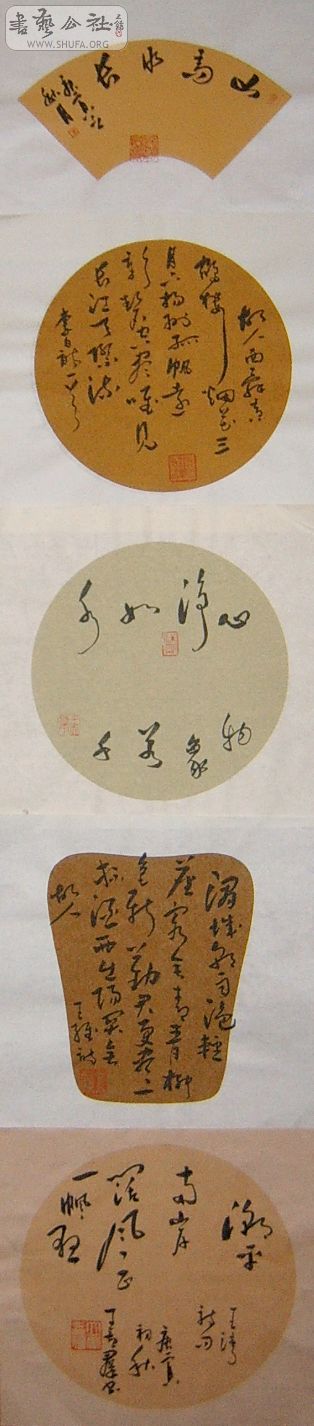 書藝公社
WWW.SHUFA.ORG
山高水长
故人西辞黄
鹤楼烟花三
月下扬州孤帆远
影碧空尽唯见
长江天际流
李白诗一首
心净如水
物象若
渭城朝雨浥轻
尘客舍青青柳
色新劝君更尽一
杯酒西出阳关无
故人
王维诗
潮平
两岸
阔风正
一帆悬
王湾
诗句
庚寅
初秋